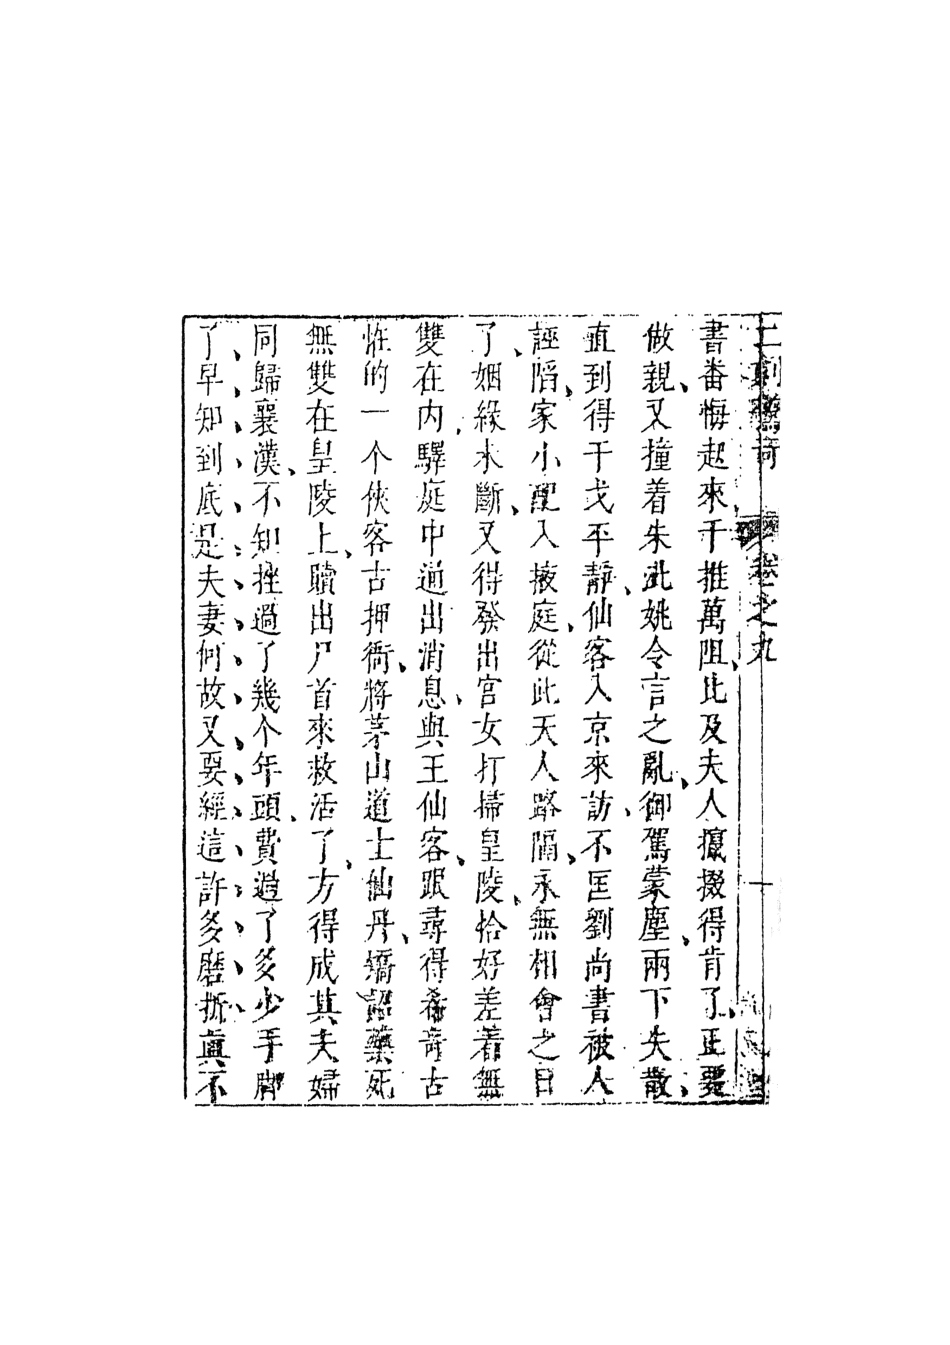 二刻驚奇 卷之九 一
書番悔起來千推萬阻、比及夫人攛掇得肯了、正要
做親、又撞着朱泚姚令言之亂、御駕蒙塵、兩下失散、
直到得干戈平靜、仙客入京來訪、不匡劉尚書被人
誣陷、家小配入掖庭、從此天人路隔、永無相會之日
了、姻緣未斷、又得發出宮女打掃皇陵、恰好差着無
雙在内、驛庭中通出消息、與王仙客、跟尋得希奇古
恠的一个俠客古押衙、將茅山道士仙丹、矯詔藥死
無雙在皇陵上、贖出尸首來救活了、方得成其夫婦
同歸襄漢、不知挫過了幾个年頭、費過了多少手脚
了、早知到底是夫妻何故又要經這許多磨折真不